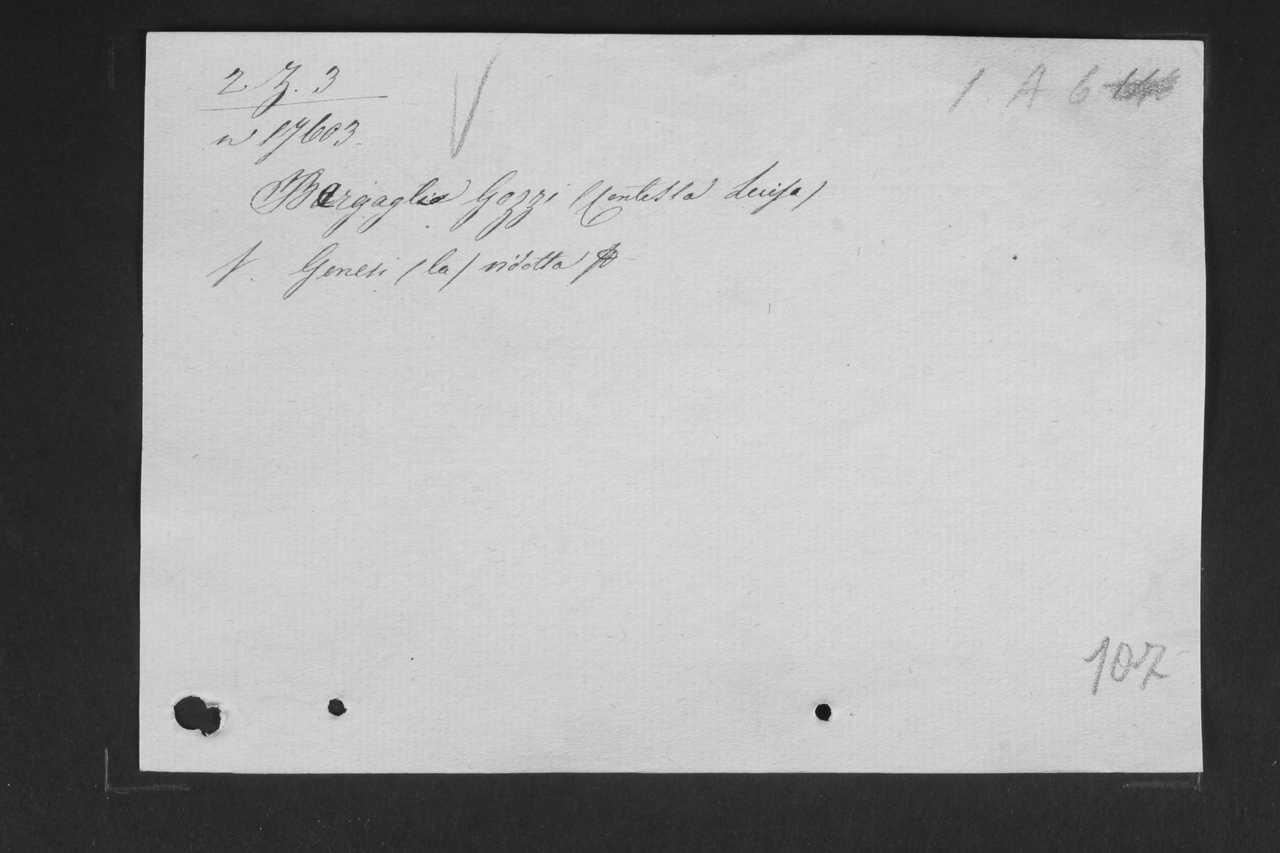 2. Z. 3
1 A 6
n 17603.
Bergaglia Gozzi (Contessa Luisa)
V. Genesi (la) ridotta
107